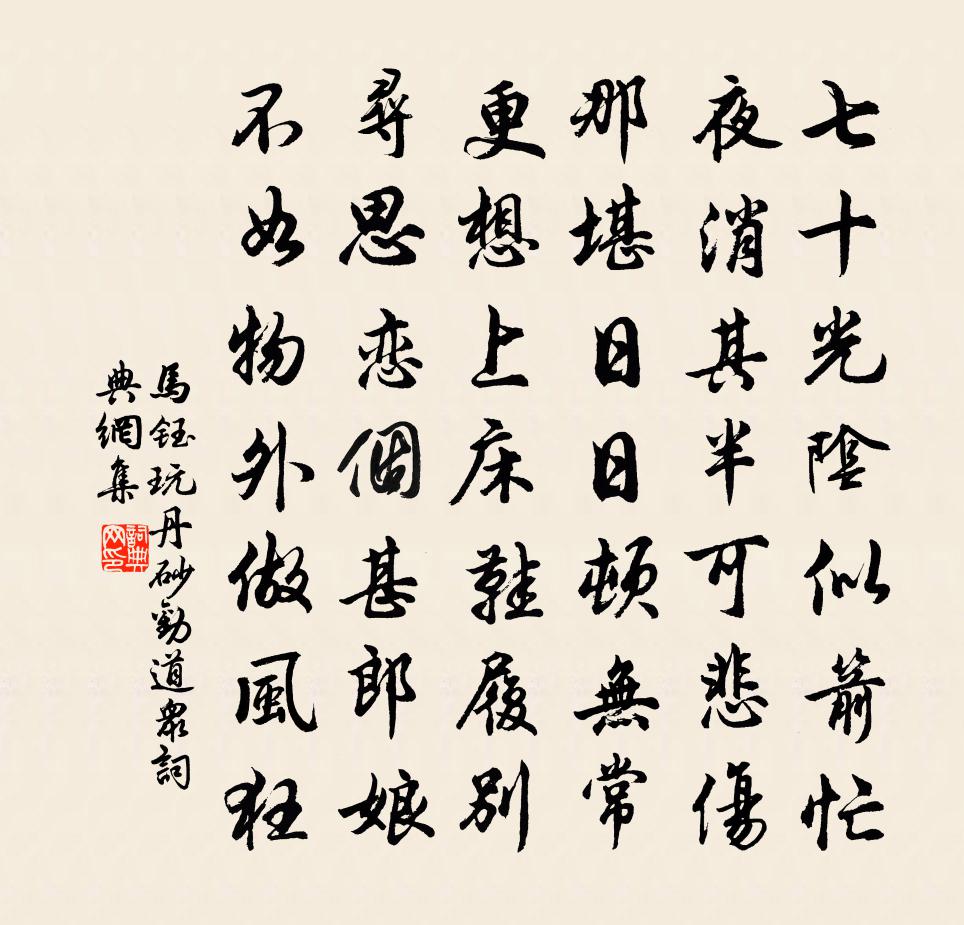 七十光陰似箭忙
夜消其半可悲傷
那堪日日頓無常
更想上床鞋履別
尋思恋個甚郎娘
不如物外做風狂
馬鈺玩丹砂勸道衆詞
典網集
詞典網印